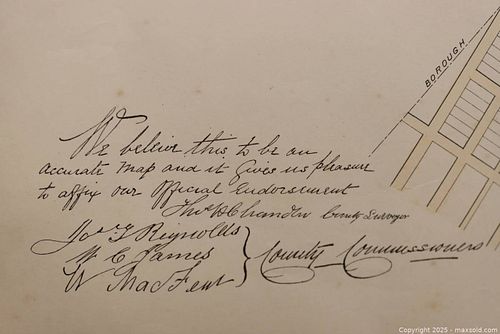 We believe this to be an
accurate map and it gives us pleasure
to affix our official endorsement
Chandler County Surveyor
Jos. T Reynolds
W C James
W
County Commissioners
BOROUGH
Copyright © 2025 - maxsold.com